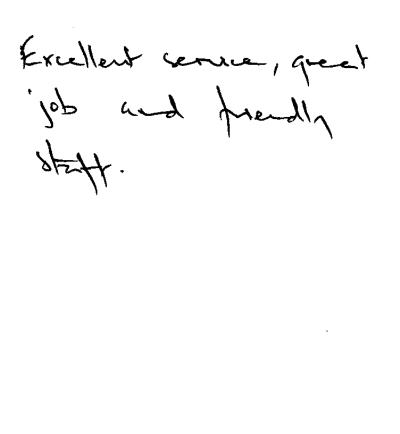 Excellent service, great
job and friendly
staff.